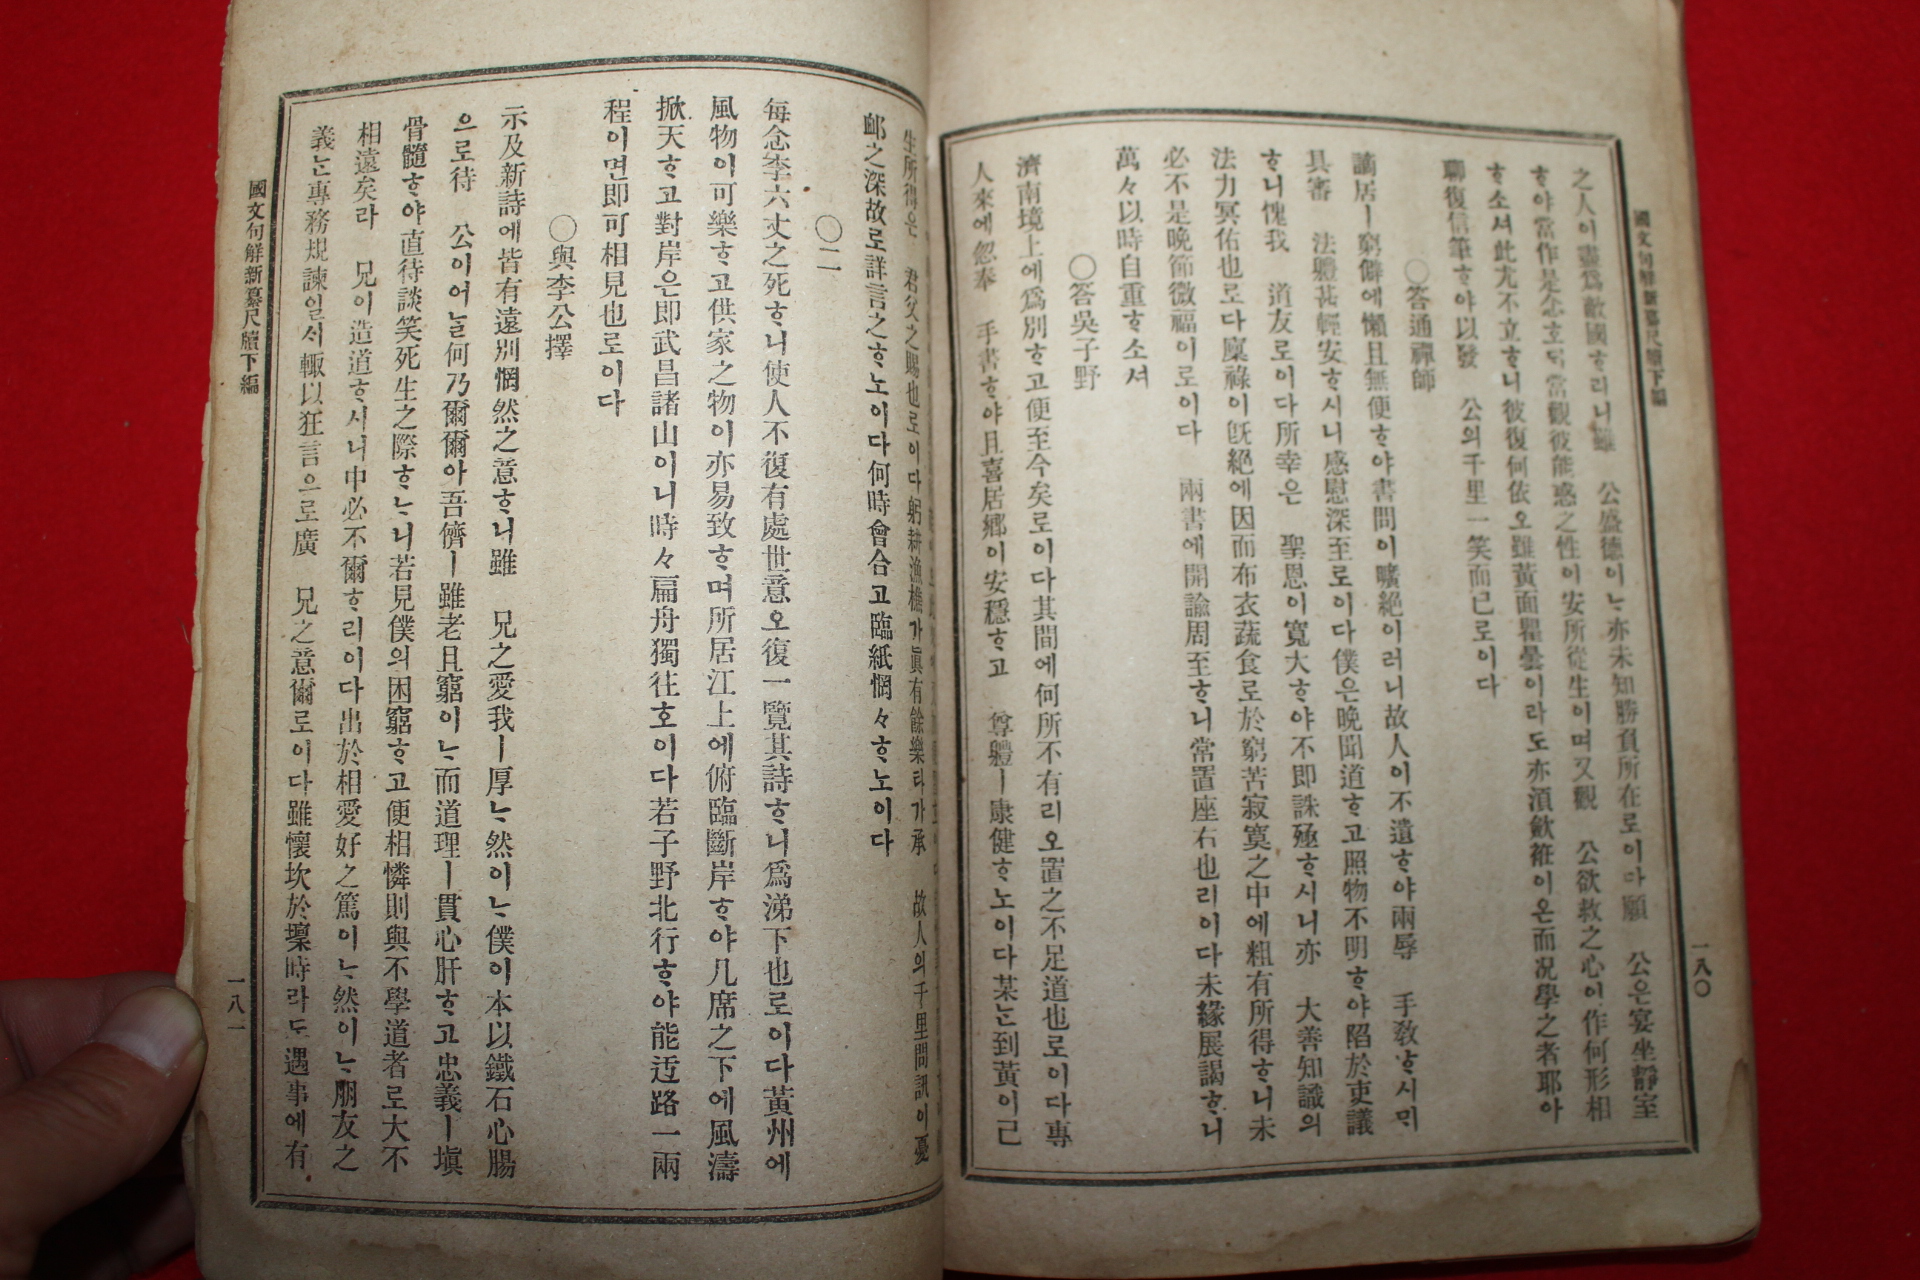 國文句解新纂尺牘下編
一八〇
之人이盡爲敵國하리니雖 公盛德이ᄂᆞ亦未知勝負所在로이다願 公은宴坐靜室
ᄒᆞ야當作是念호ᄃᆡ當觀彼能惑之性이安所從生이며又觀 公欲救之心이作何形相
ᄒᆞ소셔此尤不立ᄒᆞ니彼復何依오雖黃面瞿曇이라도亦須斂衽이온而况學之者耶아
聊復信筆ᄒᆞ야以發 公의千里一笑而已로이다
〇答通禪師
謫居ㅣ窮僻에懶且無便ᄒᆞ야書問이曠絶이러니故人이不遺ᄒᆞ야兩辱 手敎ᄒᆞ시민
具審 法體甚輕安ᄒᆞ시니感慰深至로이다僕은晩聞道ᄒᆞ고照物不明ᄒᆞ야陷於吏議
ᄒᆞ니愧我 道友로이다所幸은 聖恩이寬大ᄒᆞ야不卽誅殛ᄒᆞ시니亦 大善知識의
法力冥佑也로다廩祿이旣絶에因而布衣蔬食로於窮苦寂寞之中에粗有所得ᄒᆞ니未
必不是晩節微福이로이다 兩書에開諭周至ᄒᆞ니常置座右也리이다未緣展謁ᄒᆞ니
萬々以時自重ᄒᆞ소셔
〇答吳子野
濟南境上에爲別ᄒᆞ고便至今矣로이다其間에何所不有리오置之不足道也로이다專
人來에忽奉 手書ᄒᆞ야且喜居鄕이安穩ᄒᆞ고 尊體ㅣ康健ᄒᆞ노이다某ᄂᆞᆫ到黃이已
生所得은 君父之賜也로이다躬耕漁樵가眞有餘樂라가承 故人의千里問訊이憂
䘏之深故로詳言之ᄒᆞ노이다何時會合고臨紙惘々ᄒᆞ노이다
〇二
每念李六丈之死ᄒᆞ니使人不復有處世意오復一覽其詩ᄒᆞ니爲涕下也로이다黃州에
風物이可樂ᄒᆞ고供家之物이亦易致ᄒᆞ며所居江上에俯臨斷岸ᄒᆞ야几席之下에風濤
掀天ᄒᆞ고對岸은卽武昌諸山이니時々扁舟獨往호이다若子野北行ᄒᆞ야能迂路一兩
程이면卽可相見也로이다
〇與李公擇
示及新詩에皆有遠別惘然之意ᄒᆞ니雖 兄之愛我ㅣ厚ᄂᆞ然이ᄂᆞ僕이本以鐵石心腸
으로待 公이어ᄂᆞᆯ何乃爾爾아吾儕ㅣ雖老且窮이ᄂᆞ而道理ㅣ貫心肝ᄒᆞ고忠義ㅣ塡
骨髓ᄒᆞ야直待談笑死生之際ᄒᆞᄂᆞ니若見僕의困窮ᄒᆞ고便相憐則與不學道者로大不
相遠矣라 兄이造道ᄒᆞ시니中必不爾ᄒᆞ리이다出於相愛好之篤이ᄂᆞ然이ᄂᆞ朋友之
義ᄂᆞᆫ專務規諫일ᄉᆡ輒以狂言으로廣 兄之意爾로이다雖懷坎於壈時라도遇事에有
國文句解新纂尺牘下編
一八一